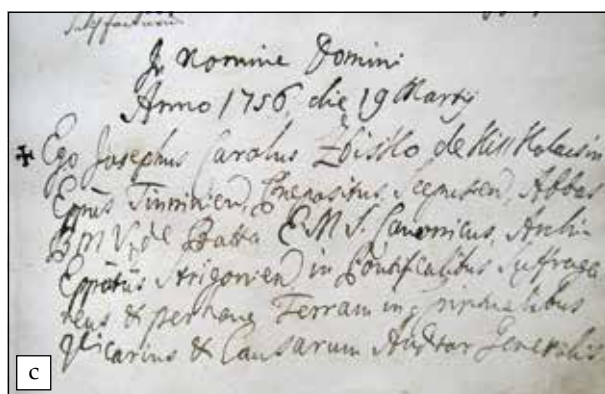 In Nomine Domini
Anno 1756, die 19 Martij
Ego Josephus Carolus Zbisko de Kis Kolacsin
Eppus Tinninien, Praepositus Scepusien, Abbas
B M V, de Batta E. M. S. Canonicus, Archi
Eppatus Strigonien in Pontificalibus Suffraga
neus & per hanc Terram in Spiritualibus
Vicarius & Causarum Auditor Generalis
c